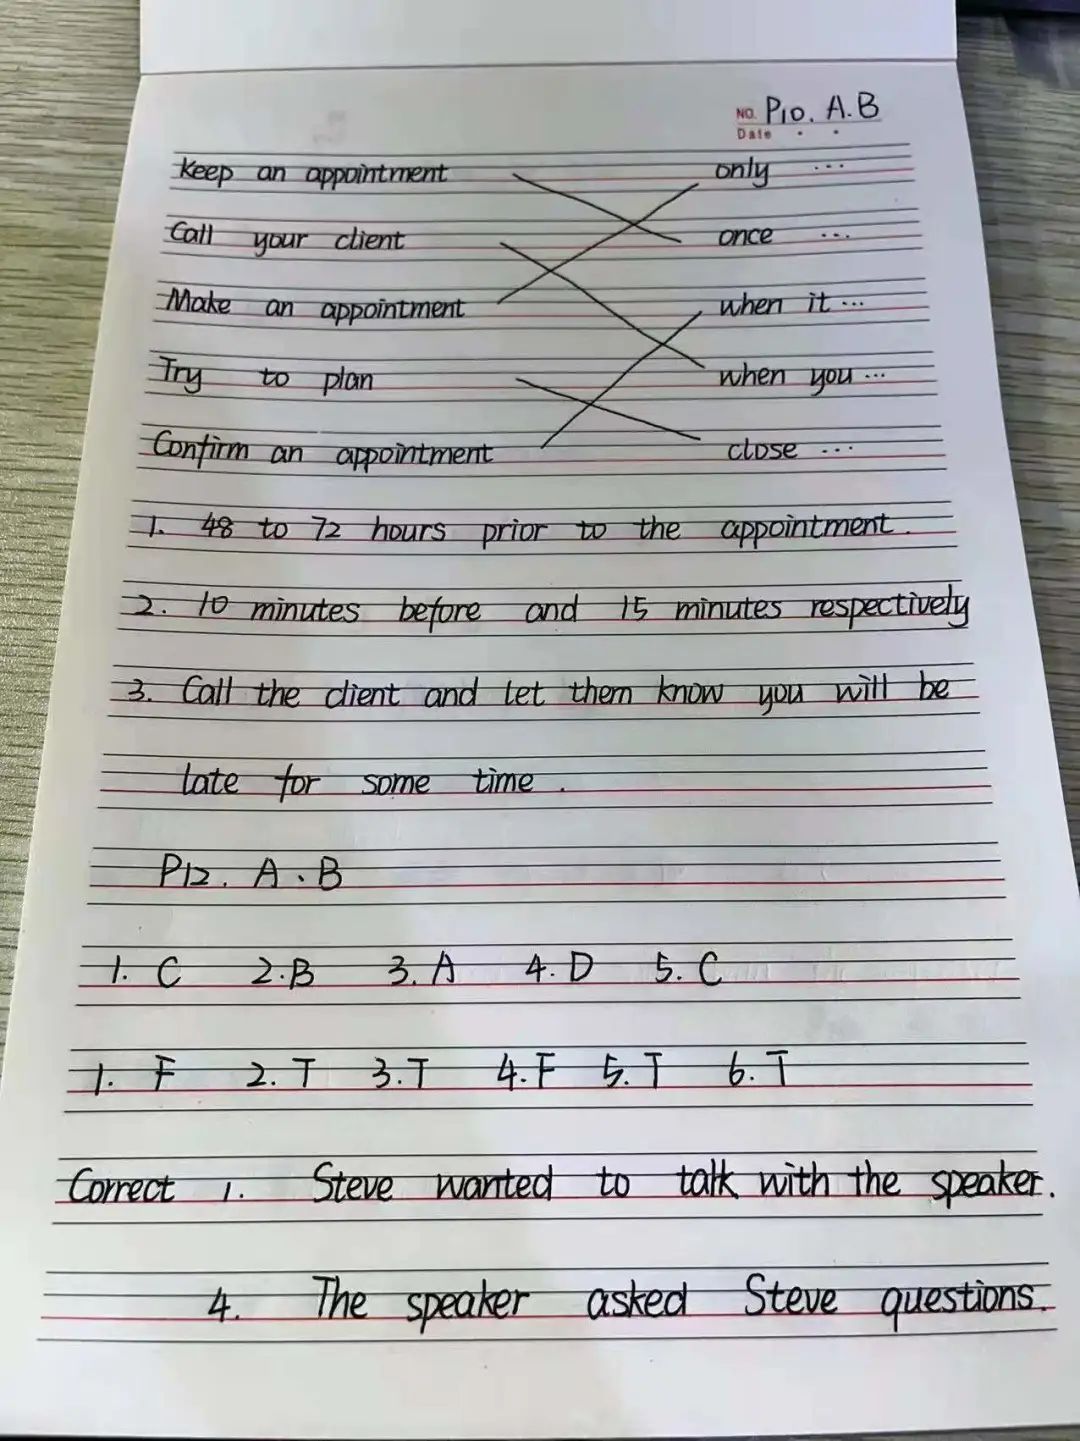 NO. P10. A.B
Date
Keep an appointment only ...
Call your client once ...
Make an appointment when it ...
Try to plan when you ...
Confirm an appointment close ...
1. 48 to 72 hours prior to the appointment.
2. 10 minutes before and 15 minutes respectively
3. Call the client and let them know you will be
late for some time.
P12. A.B
1. C 2.B 3. A 4. D 5. C
1. F 2. T 3.T 4.F 5.T 6.T
Correct 1. Steve wanted to talk with the speaker.
4. The speaker asked Steve questions.